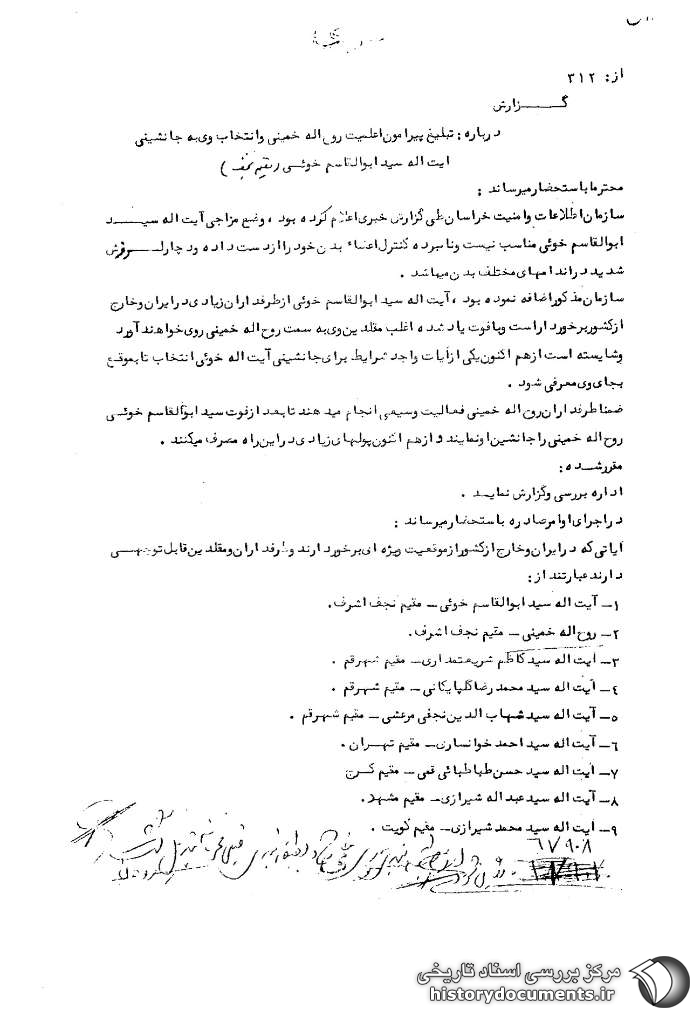 از: ۳۱۲
گـــزارش
درباره: تبلیغ پیرامون اعلمیت روح اله خمینی و انتخاب وی به جانشینی
آیت اله سید ابوالقاسم خوئی (مقیم نجف)
محترما باستحضار میرساند:
سازمان اطلاعات و امنیت خراسان طی گزارش خبری اعلام کرده بود، وضع مزاجی آیت اله سیـــد
ابوالقاسم خوئی مناسب نیست و نامبرده کنترل اعضاء بدن خود را از دست داده و دچار لـــرزش
شدید در اندامهای مختلف بدن میباشد.
سازمان مذکور اضافه نموده بود، آیت اله سید ابوالقاسم خوئی از طرفداران زیادی در ایران و خارج
از کشور برخوردار است و با فوت یاد شده اغلب مقلدین وی به سمت روح اله خمینی روی خواهند آورد
و شایسته است از هم اکنون یکی از آیات واجد شرایط برای جانشینی آیت اله خوئی انتخاب تا بموقع
بجای وی معرفی شود.
ضمنا طرفداران روح اله خمینی فعالیت وسیعی انجام میدهند تا بعد از فوت سید ابوالقاسم خوئی
روح اله خمینی را جانشین او نمایند و از هم اکنون پولهای زیادی در این راه مصرف میکنند.
مقرر شده:
اداره بررسی و گزارش نماید.
در اجرای اوامر صادره باستحضار میرساند:
آیاتی که در ایران و خارج از کشور از موقعیت ویژه ای برخوردارند و طرفداران و مقلدین قابل توجهــی
دارند عبارتند از:
۱- آیت اله سید ابوالقاسم خوئی - مقیم نجف اشرف.
۲- روح اله خمینی - مقیم نجف اشرف.
۳- آیت اله سید کاظم شریعتمداری - مقیم شهر قم.
۴- آیت اله سید محمد رضا گلپایگانی - مقیم شهر قم.
۵- آیت اله سید شهاب الدین نجفی مرعشی - مقیم شهر قم.
۶- آیت اله سید احمد خوانساری - مقیم تهران.
۷- آیت اله سید حسن طباطبائی قمی - مقیم کرج
۸- آیت اله سید عبداله شیرازی - مقیم مشهد.
۹- آیت اله سید محمد شیرازی - مقیم کویت.
۶۷۹۰۸
مرکز بررسی اسناد تاریخی
historydocuments.ir